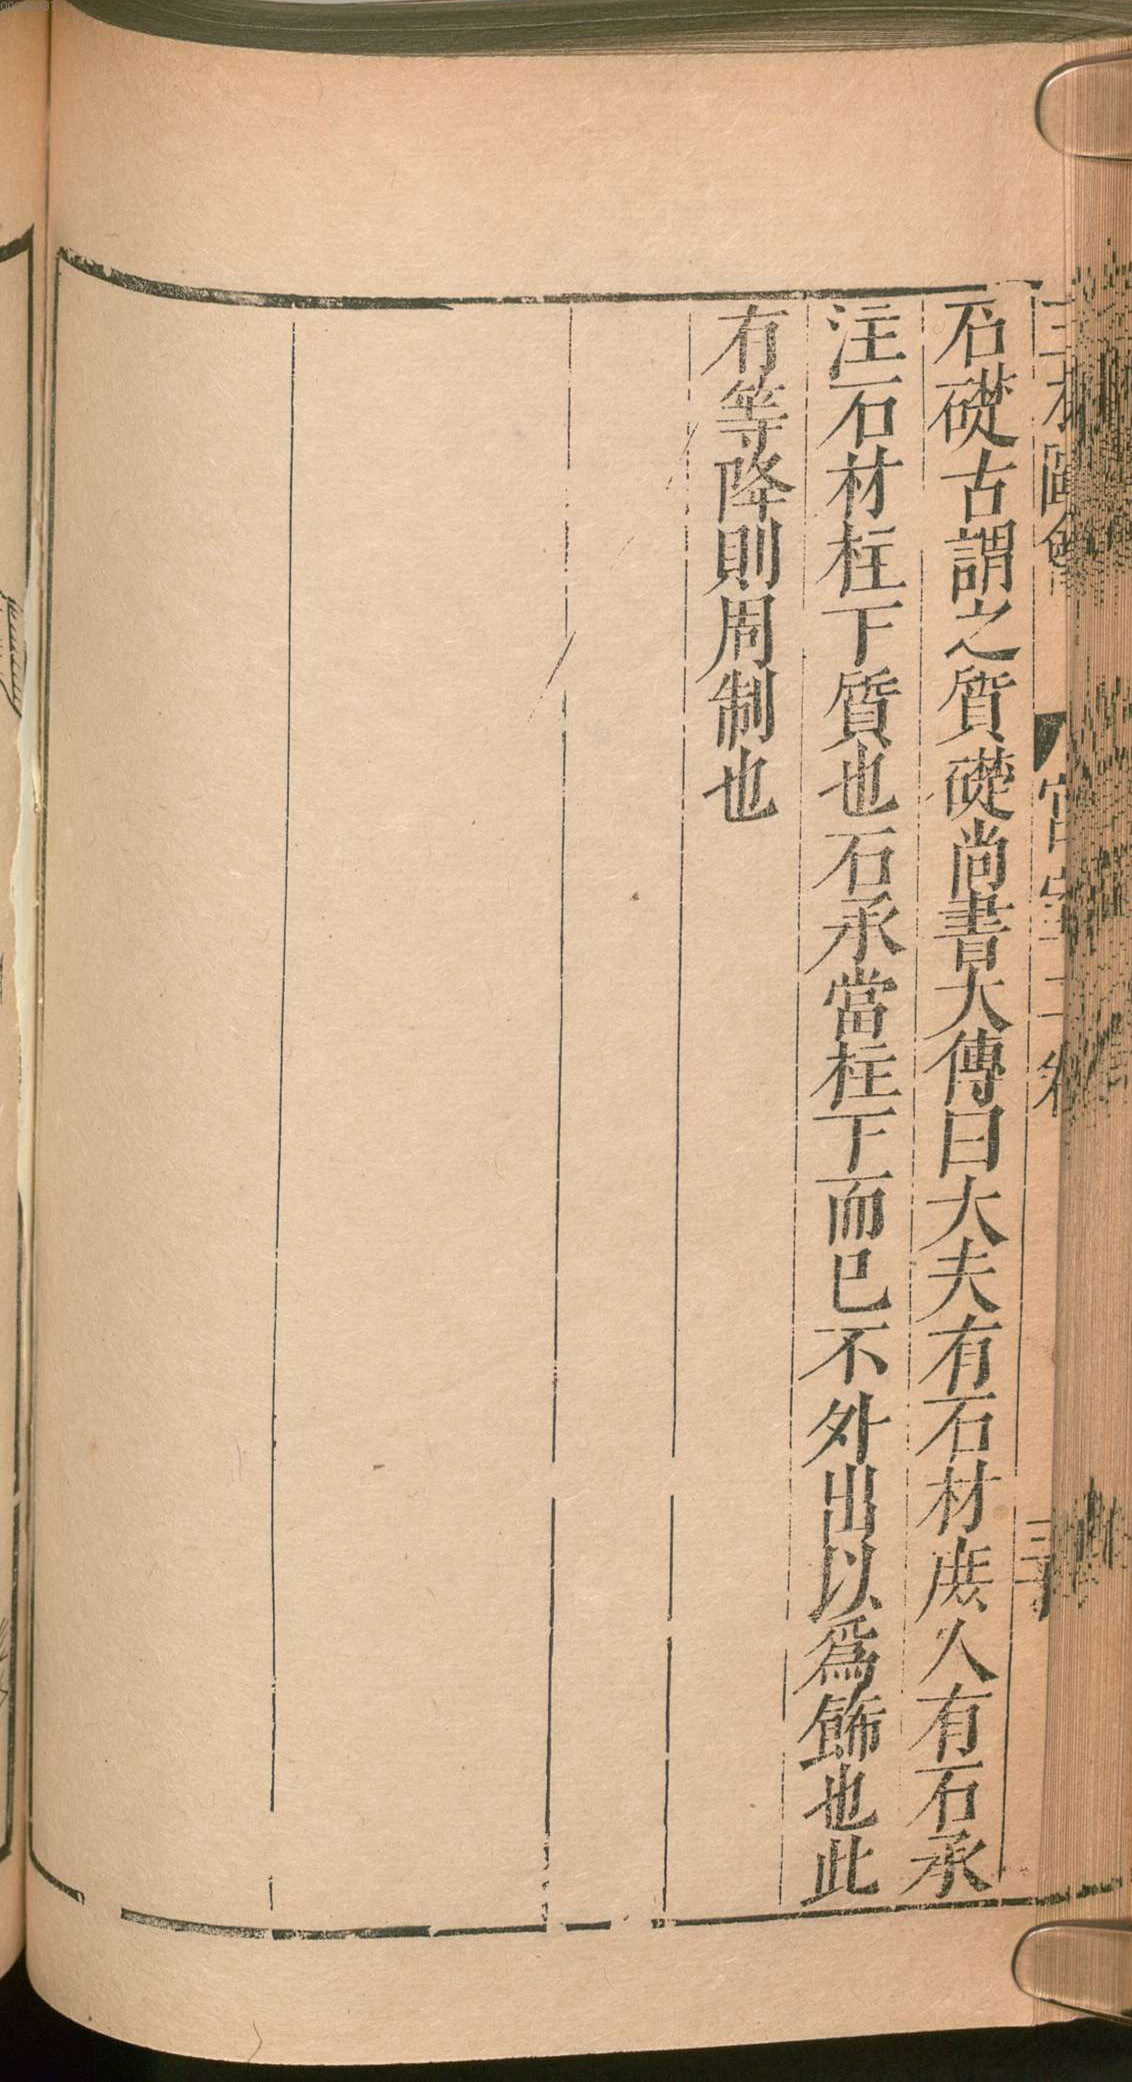 三才圖會 宮室二卷 三十
石礎古謂之質礎尚書大傳曰大夫有石材庶人有石承
注石材柱下質也石承當柱下而已不外出以爲飾也此
有等降則周制也